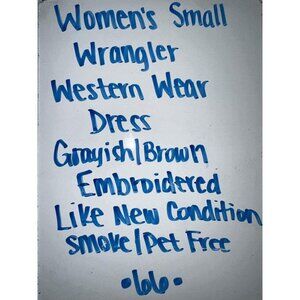 Women's Small
Wrangler
Western Wear
Dress
Grayish/Brown
Embroidered
Like New Condition
Smoke/Pet Free
•66•